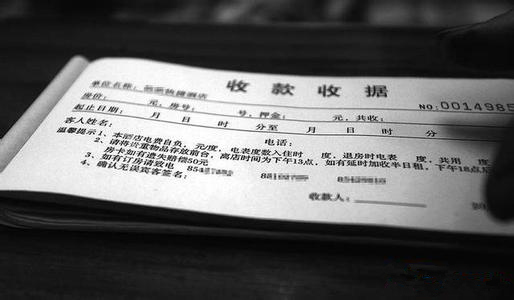 收款收据
单位名称：快捷酒店
NO:0014985
房价： 元，房号： 号，押金： 元，共收：
起止日期： 月 日 时 分至 月 日 时 分
客人姓名： 电话：
温馨提示1、本酒店电费自负，元/度，电表度数入住时 度，退房时电表 度，共用 度
2、请将贵重物品存放前台，离店时间为下午13点，如有延时加收半日租，下午18点后
房卡如有遗失赔偿50元
3、如有订房请致电
4、确认无误宾客签名：
收款人：